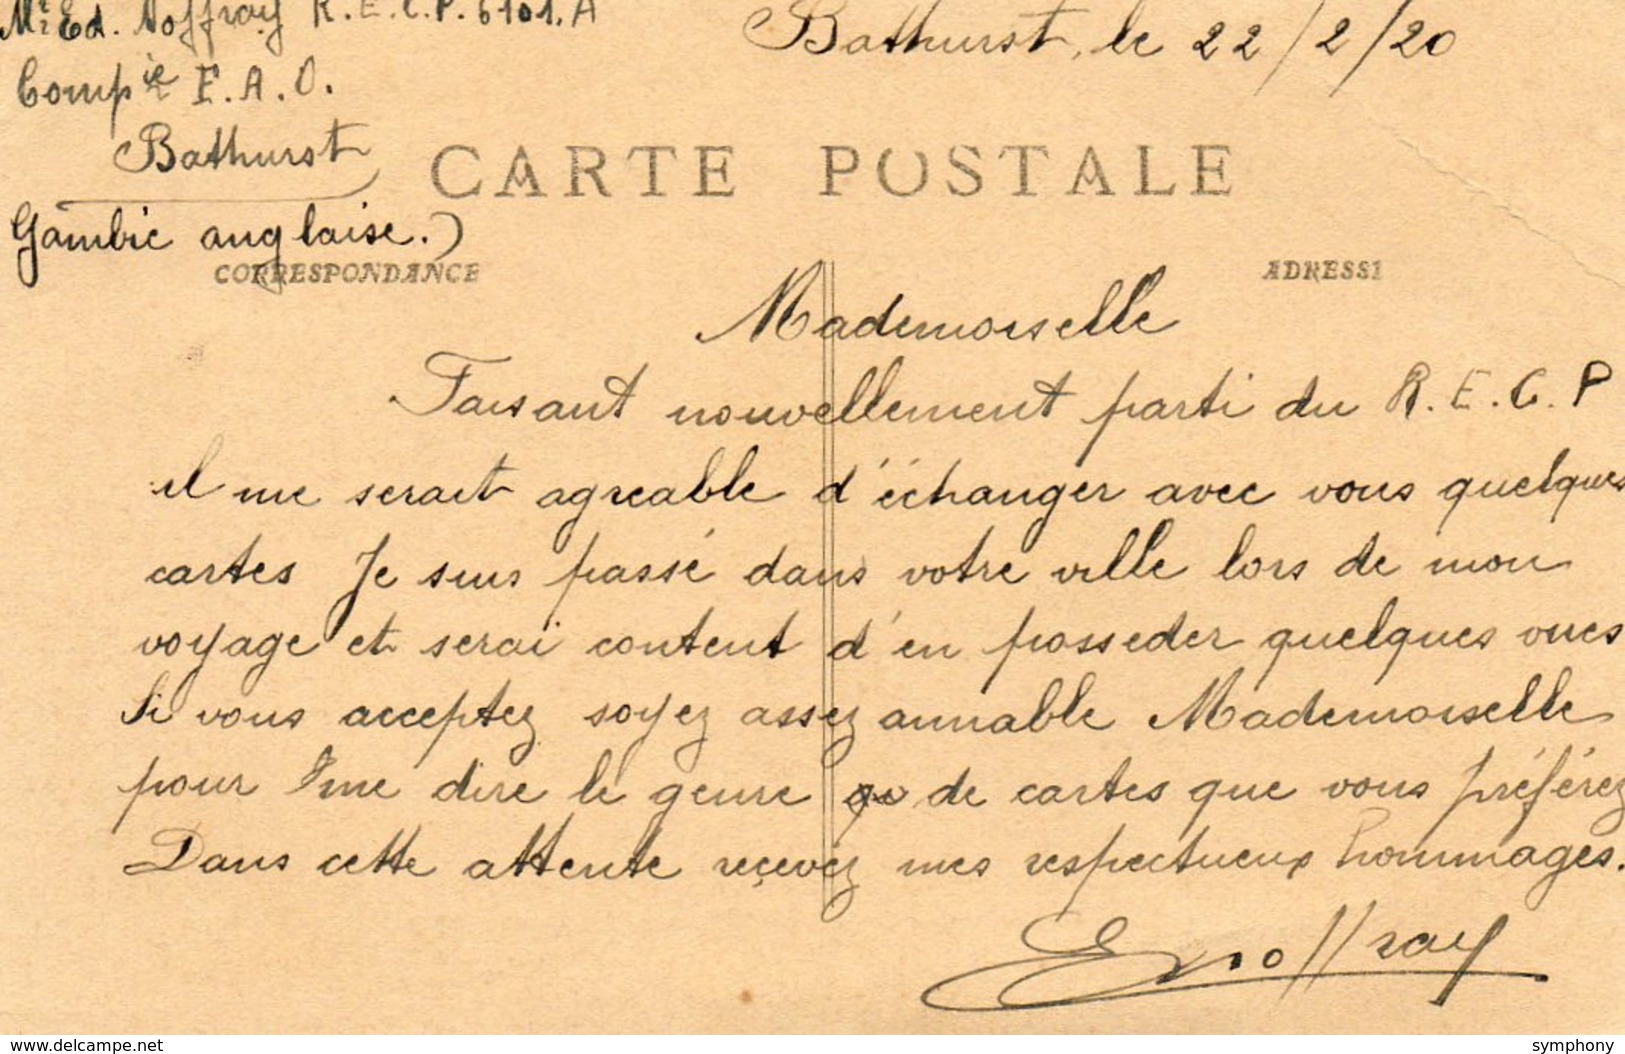 Mr Ed. Noffray R.E.C.P. 6101.A
Bathurst, le 22/2/20
Compie F.A.O.
Bathurst
CARTE POSTALE
Gambie anglaise.)
CORRESPONDANCE
ADRESSE
Mademoiselle
Faisant nouvellement parti du R.E.C.P
il me serait agreable d'échanger avec vous quelques
cartes Je suis passé dans votre ville lors de mon
voyage et serai content d'en posseder quelques vues
Si vous acceptez soyez assez aimable Mademoiselle
pour me dire le genre de cartes que vous préférez
Dans cette attente reçevéz mes respectueux hommages.
ENoffray
www.delcampe.net
symphony